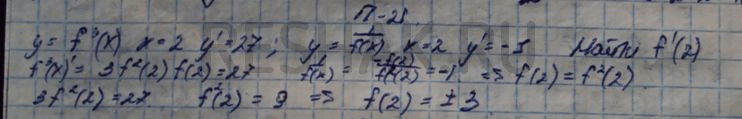 П-25.
y = f³(x) x = 2 y' = 27; y = 1/f(x) x = 2 y' = -1 Найти f'(2)
f³(x)' = 3f²(2) f(2) = 27 1/f(x) = -f(2)/f²(2) = -1 => f(2) = f²(2)
3f²(2) = 27 f²(2) = 9 => f(2) = ±3